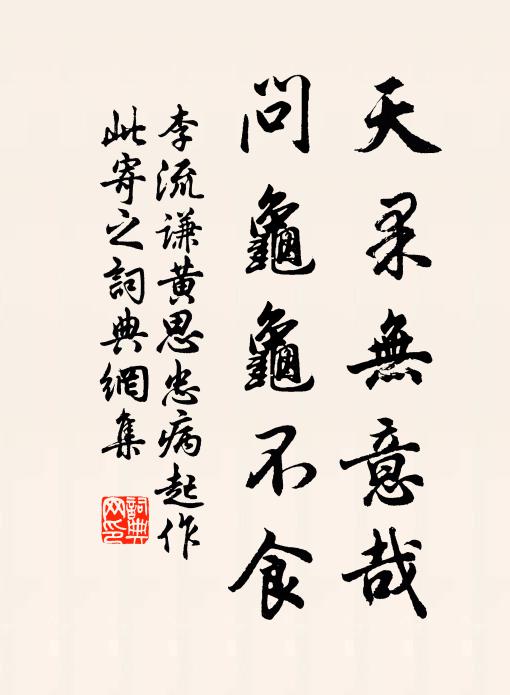 天果無意哉
問龜龜不食
李流谦黄思忠病起作
此寄之詞典網集
詞典
网印